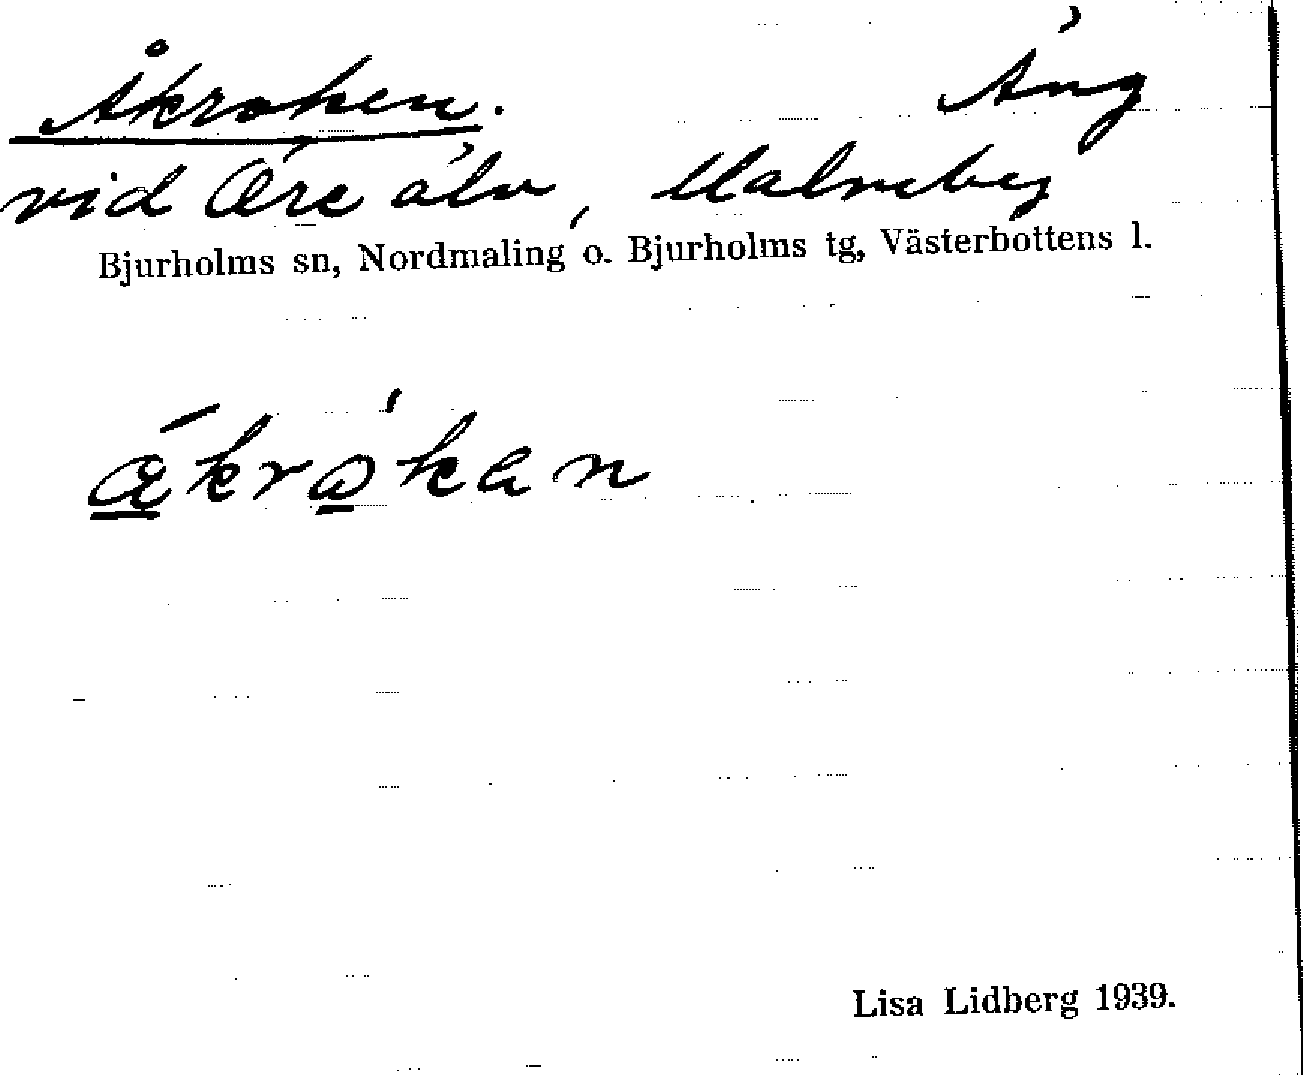 Åkroken. Äng
vid Öre älv, Malneby
Bjurholms sn, Nordmaling o. Bjurholms tg, Västerbottens l.
Lisa Lidberg 1939.